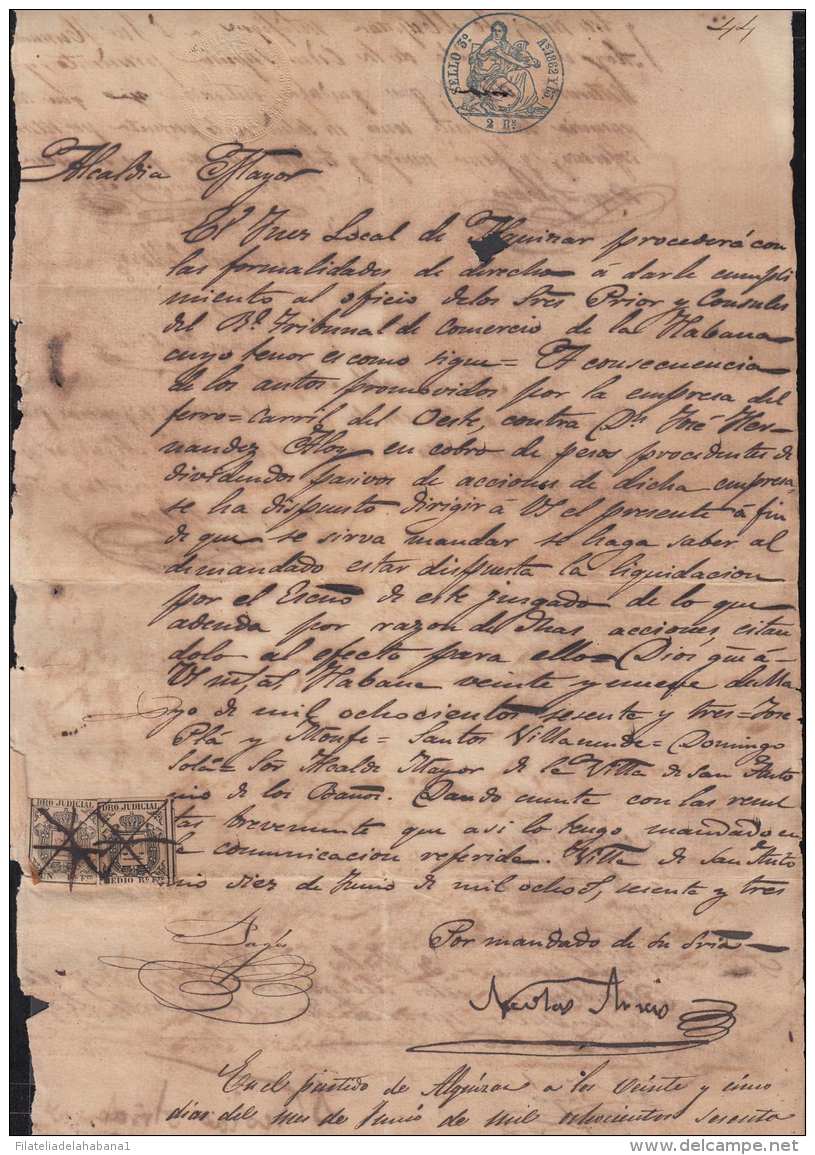 44
SELLO 3º Aˢ 1862 Y 63
2 Rˢ
Alcaldia Mayor
El Juez Local de Alquizar procederá con
las formalidades de derecho á darle cumpli
miento al oficio de los Sres Prior y Consules
del Rˡ Tribunal de Comercio de la Habana
cuyo tenor es como sigue = A consecuencia
de los autos promovidos por la empresa del
ferro=carril del Oeste, contra Dⁿ José Her-
nandez Aloy en cobro de pesos procedentes de
dividendos pasivos de acciones de dicha empresa
se ha dispuesto dirigir á VS el presente á fin
de que se sirva mandar se haga saber al
demandado estar dispuesta la liquidacion
por el Escnº de este juzgado de lo que
adeuda por razon de dhas acciones, citan
dolo al efecto para ello = Dios gue á
VS ms. as. Habana veinte y nueve de Ma
yo de mil ochocientos sesenta y tres = José
Plá y Monfe = Santos Villaverde = Domingo
Solá = Sor Alcalde Mayor de la Villa de San Anto
nio de los Baños. Dando cuenta con las resul
tas brevemente que asi lo tengo mandado en
la comunicacion referida. Villa de San Anto
nio diez de Junio de mil ochos. sesenta y tres
DRO JUDICIAL
UN Rˡ Fᵗᵉ
DRO JUDICIAL
MEDIO Rˡ Fᵗᵉ
Por mandado de su Sria
Nicolas
En el partido de Alquizar a los veinte y cinco
dias del mes de Junio de mil ochocientos sesenta
Filateliadelahabana1